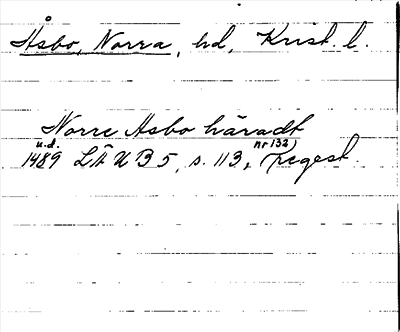 Åsbo, Norra, hd, Krist. l.
Norre Asbo häradt
u.d.
1489 LÄUB 5, s. 113, (nr 132) regest.